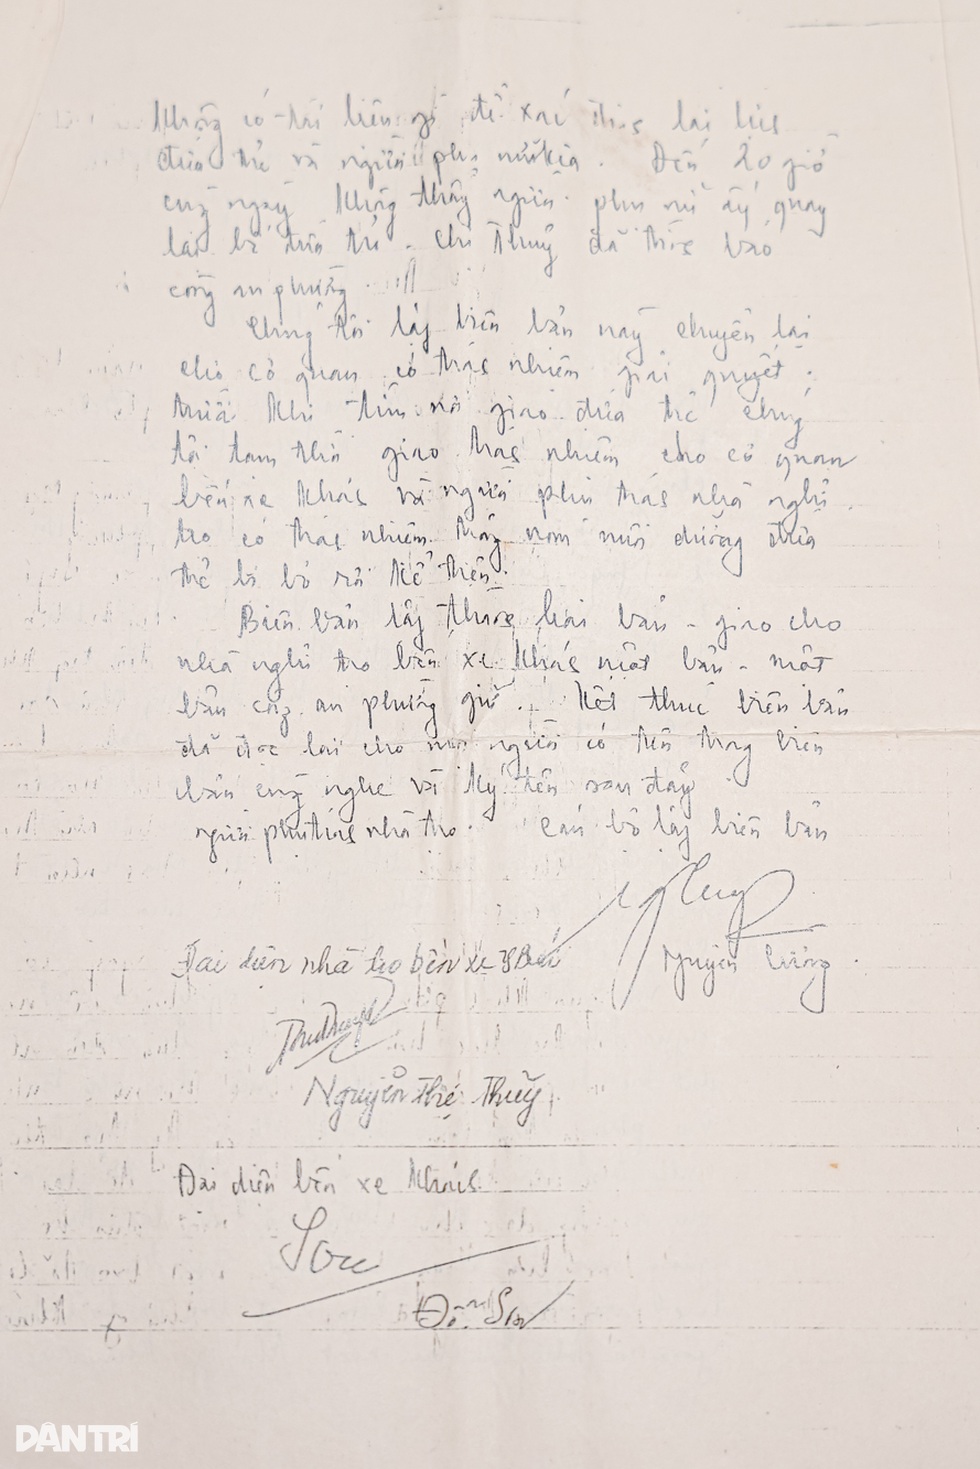 không có tài liệu gì để xác định lai lịc
đứa trẻ và người phụ nữ kia. Đến 20 giờ
cùng ngày không thấy người phụ nữ ấy quay
lại bế đứa trẻ. chị Thuỷ đã báo
công an phường.
Chúng tôi lập biên bản này chuyển lại
cho cơ quan có trách nhiệm giải quyết.
trước khi tìm nơi giao đứa trẻ chúng
tôi tạm thời giao trách nhiệm cho cơ quan
bến xe khách và người phụ trách nhà nghỉ
trọ có trách nhiệm trông nom nuôi dưỡng đứa
trẻ bị bỏ rơi kể trên.
Biên bản lập thành hai bản - giao cho
nhà nghỉ trọ bến xe khách một bản - một
bản công an phường giữ. Kết thúc biên bản
đã đọc lại cho mọi người có tên trong biên
bản cùng nghe và ký tên sau đây
người phụ trách nhà trọ. Cán bộ lập biên bản
Đại diện nhà trọ bến xe khách Nguyễn Cường
Nguyễn Thị Thuỷ
Đại diện bến xe khách
DÂN TRÍ